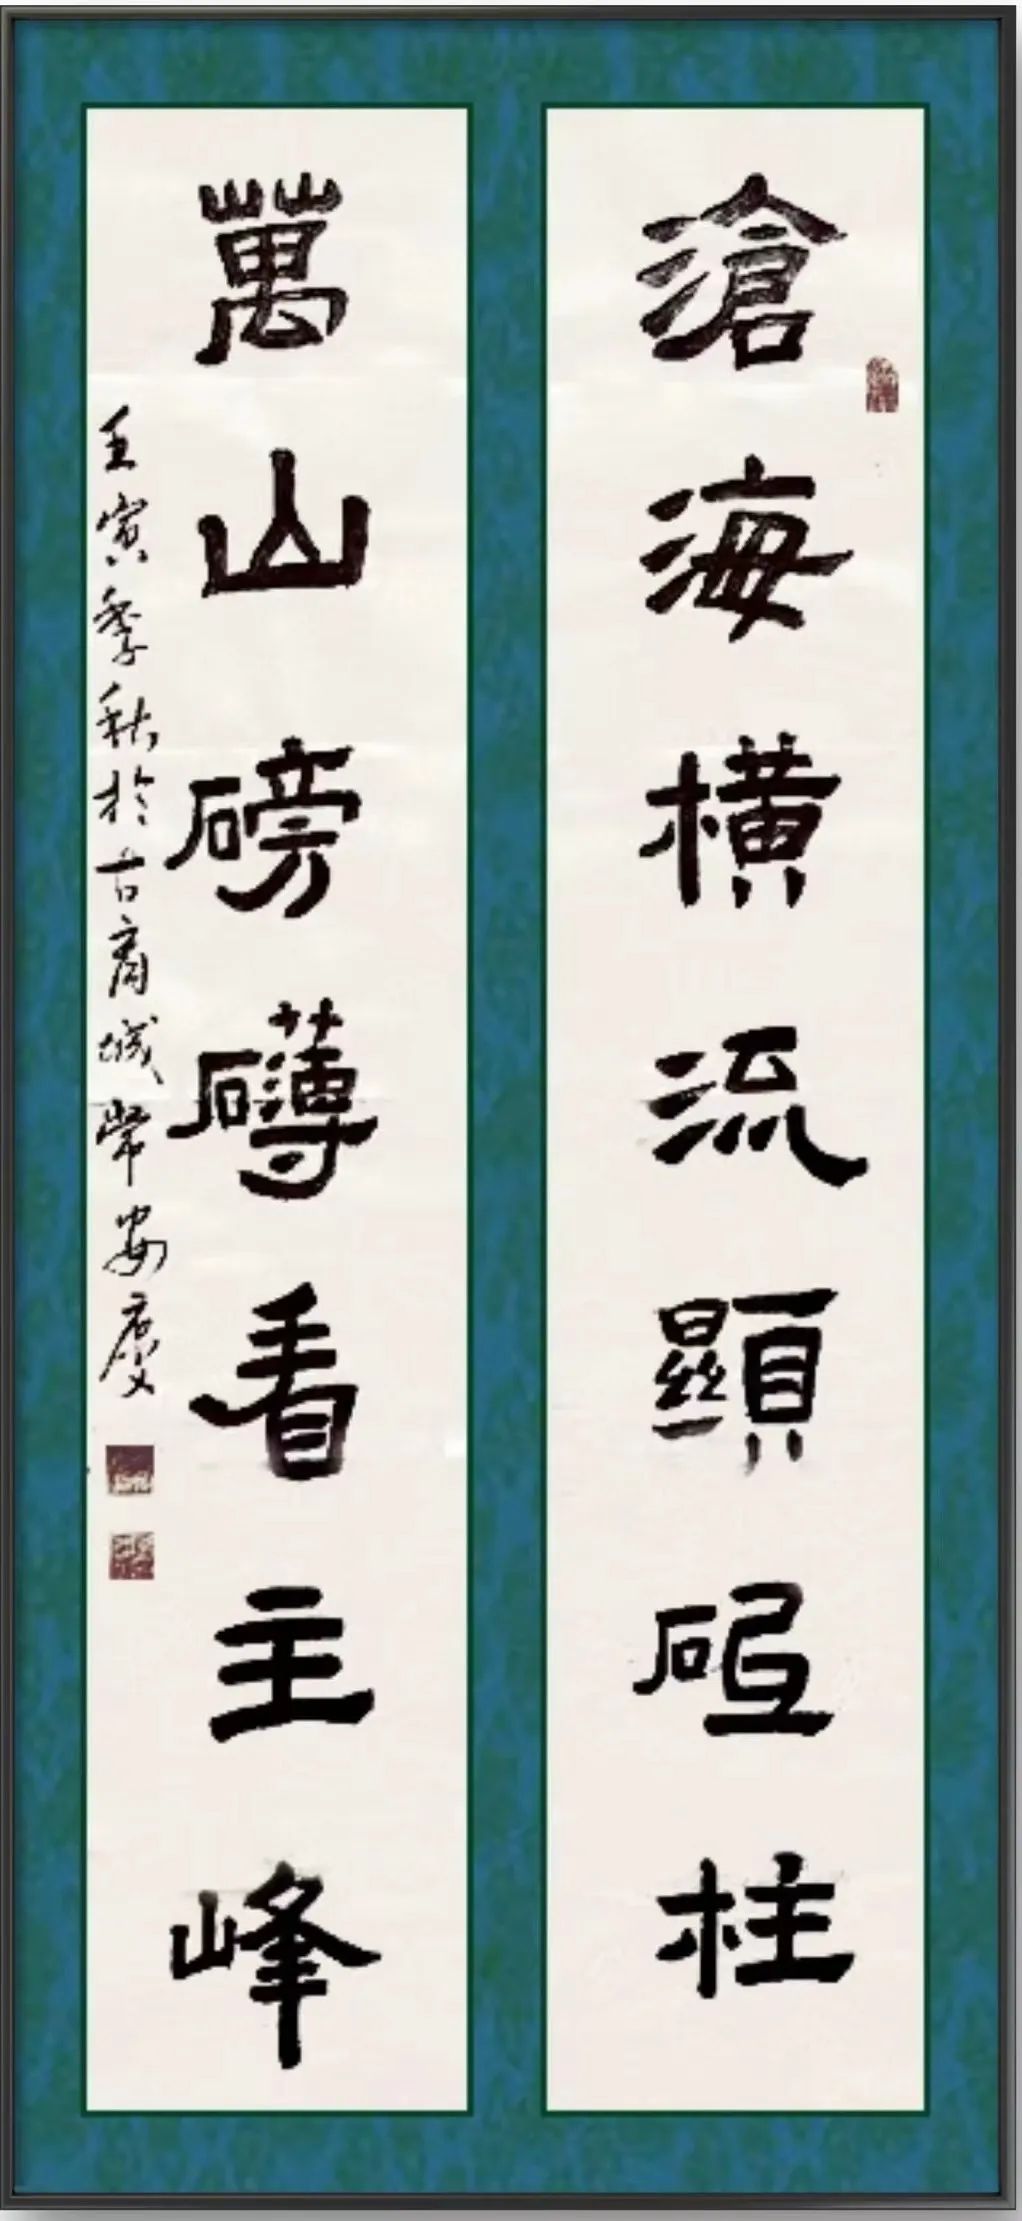 滄海橫流顯砥柱
萬山磅礴看主峰
壬寅季秋於古商城常安慶